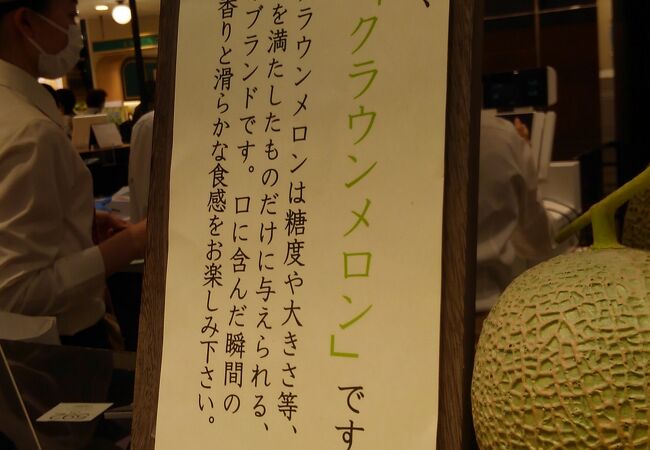 「クラウンメロン」です
ラウンメロンは糖度や大きさ等、
を満たしたものだけに与えられる、
ブランドです。口に含んだ瞬間の
香りと滑らかな食感をお楽しみ下さい。